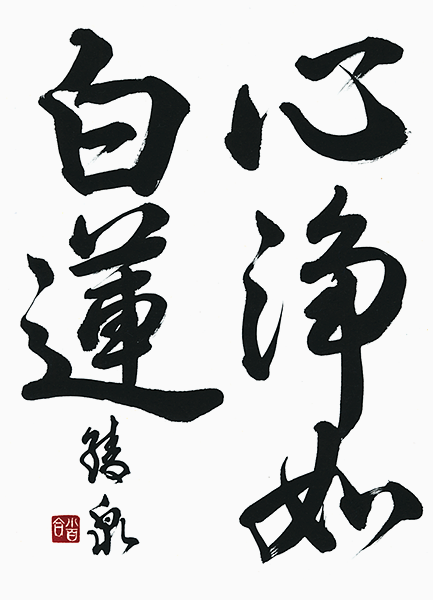 心浄如
白蓮
泉